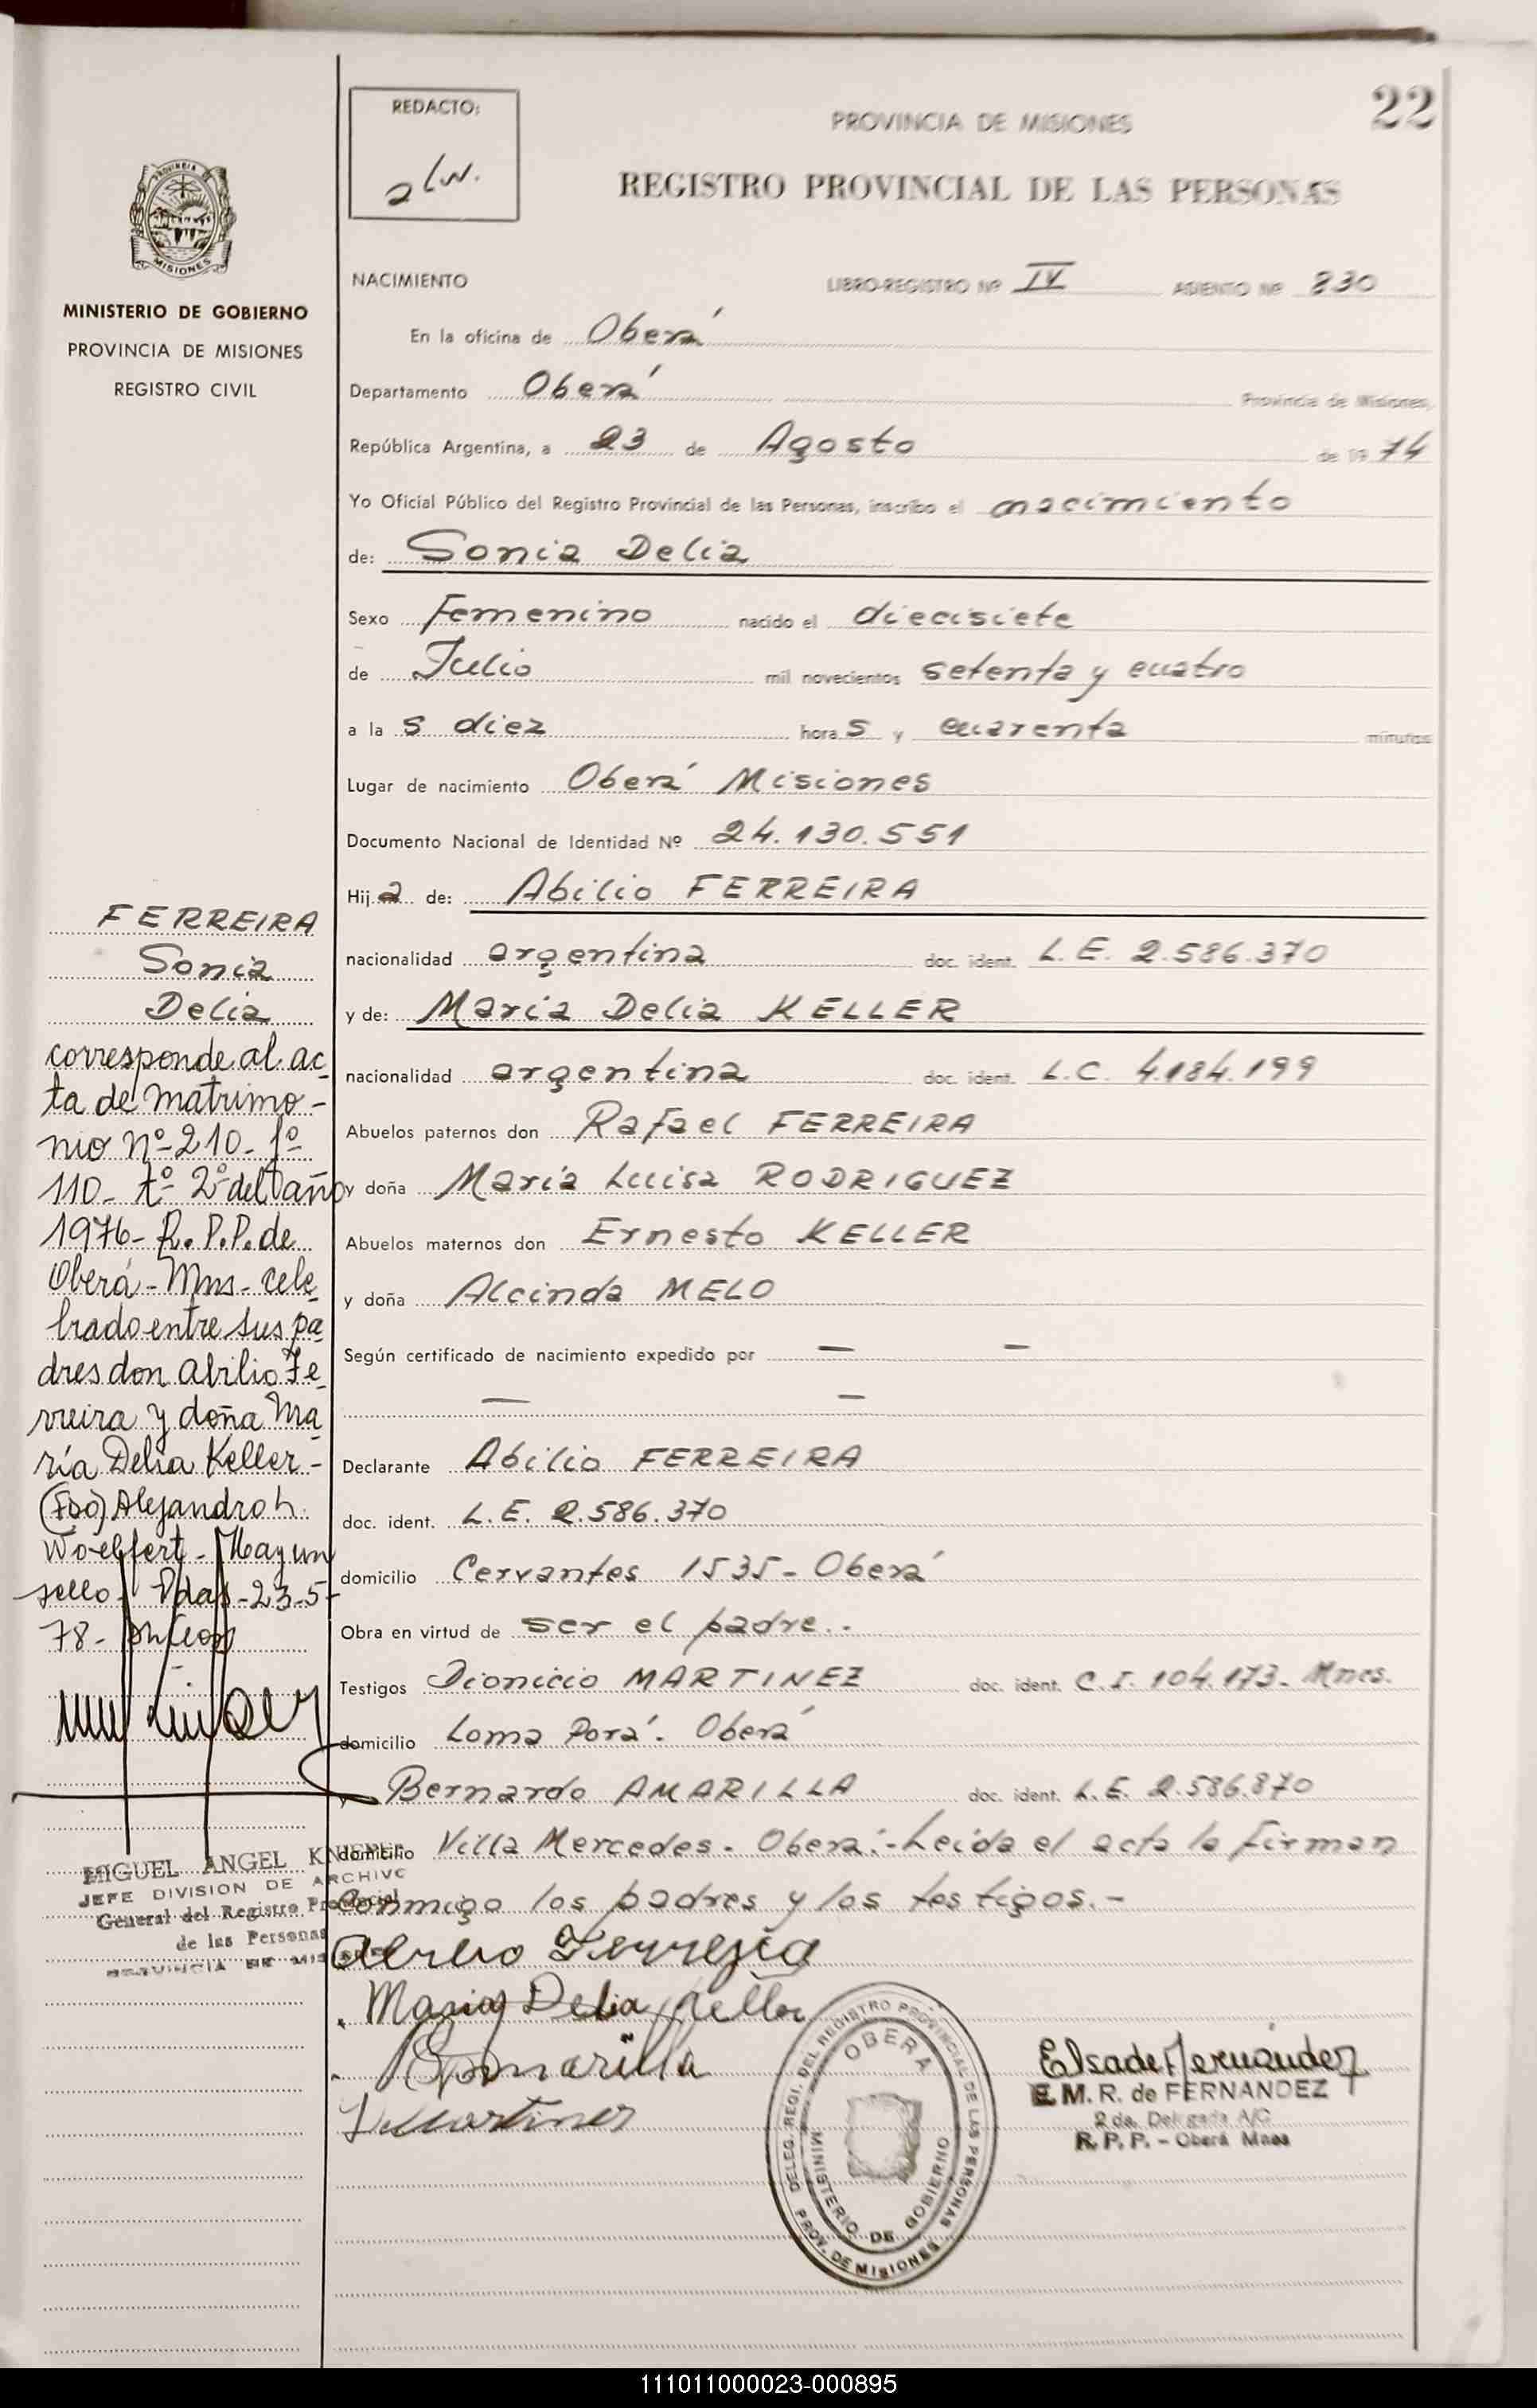 REDACTO:
alw.
PROVINCIA DE MISIONES
22
REGISTRO PROVINCIAL DE LAS PERSONAS
PROVINCIA
MISIONES
MINISTERIO DE GOBIERNO
PROVINCIA DE MISIONES
REGISTRO CIVIL
NACIMIENTO LIBRO-REGISTRO Nº IV ASIENTO Nº 830
En la oficina de Oberá
Departamento Oberá Provincia de Misiones,
República Argentina, a 23 de Agosto de 1974
Yo Oficial Público del Registro Provincial de las Personas, inscribo el nacimiento
de: Sonia Delia
Sexo Femenino nacido el diecisiete
de Julio mil novecientos setenta y cuatro
a las diez horas y cuarenta minutos
Lugar de nacimiento Oberá Misiones
Documento Nacional de Identidad Nº 24.130.551
Hija de: Abilio FERREIRA
nacionalidad argentina doc. ident. L.E. 2.586.370
y de: María Delia KELLER
nacionalidad argentina doc. ident. L.C. 4.184.199
Abuelos paternos don Rafael FERREIRA
y doña María Luisa RODRIGUEZ
Abuelos maternos don Ernesto KELLER
y doña Alcinda MELO
Según certificado de nacimiento expedido por — —
— —
Declarante Abilio FERREIRA
doc. ident. L.E. 2.586.370
domicilio Cervantes 1535 - Oberá
Obra en virtud de ser el padre..
Testigos Dionicio MARTINEZ doc. ident. C.I. 104.173- Mnes.
domicilio Loma Porá. Oberá
y Bernardo AMARILLA doc. ident. L.E. 2.586.870
domicilio Villa Mercedes. Oberá.- Leída el acta la firman
conmigo los padres y los testigos.-
FERREIRA
Sonia
Delia
corresponde al ac
ta de matrimo-
nio nº 210- fº
110- tº 2º del año
1976- R.P.P. de
Oberá - Mns - cele
brado entre sus pa
dres don Abilio Fe
rreira y doña Ma
ría Delia Keller -
(Fdo) Alejandro L.
Woelfert - Hay un
sello - Pdas - 23-5-
78-
MIGUEL ANGEL
JEFE DIVISION DE ARCHIVO
General del Registro Provincial
de las Personas
PROVINCIA DE MISIONES
Abilio Ferreira
Maria Delia Keller
B Amarilla
D Martinez
DELEG. REGI. DEL REGISTRO PROVINCIAL DE LAS PERSONAS
OBERA
MINISTERIO DE GOBIERNO
PROV. DE MISIONES
Elsa de Fernández
E. M. R. de FERNANDEZ
2 da. Delegada A/C
R. P. P. - Oberá Mnes
111011000023-000895